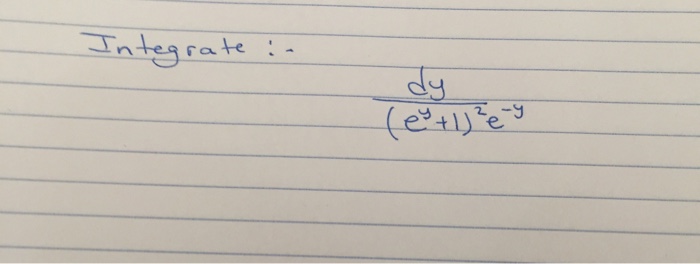 Integrate :-
dy
(e^y+1)^2e^-y